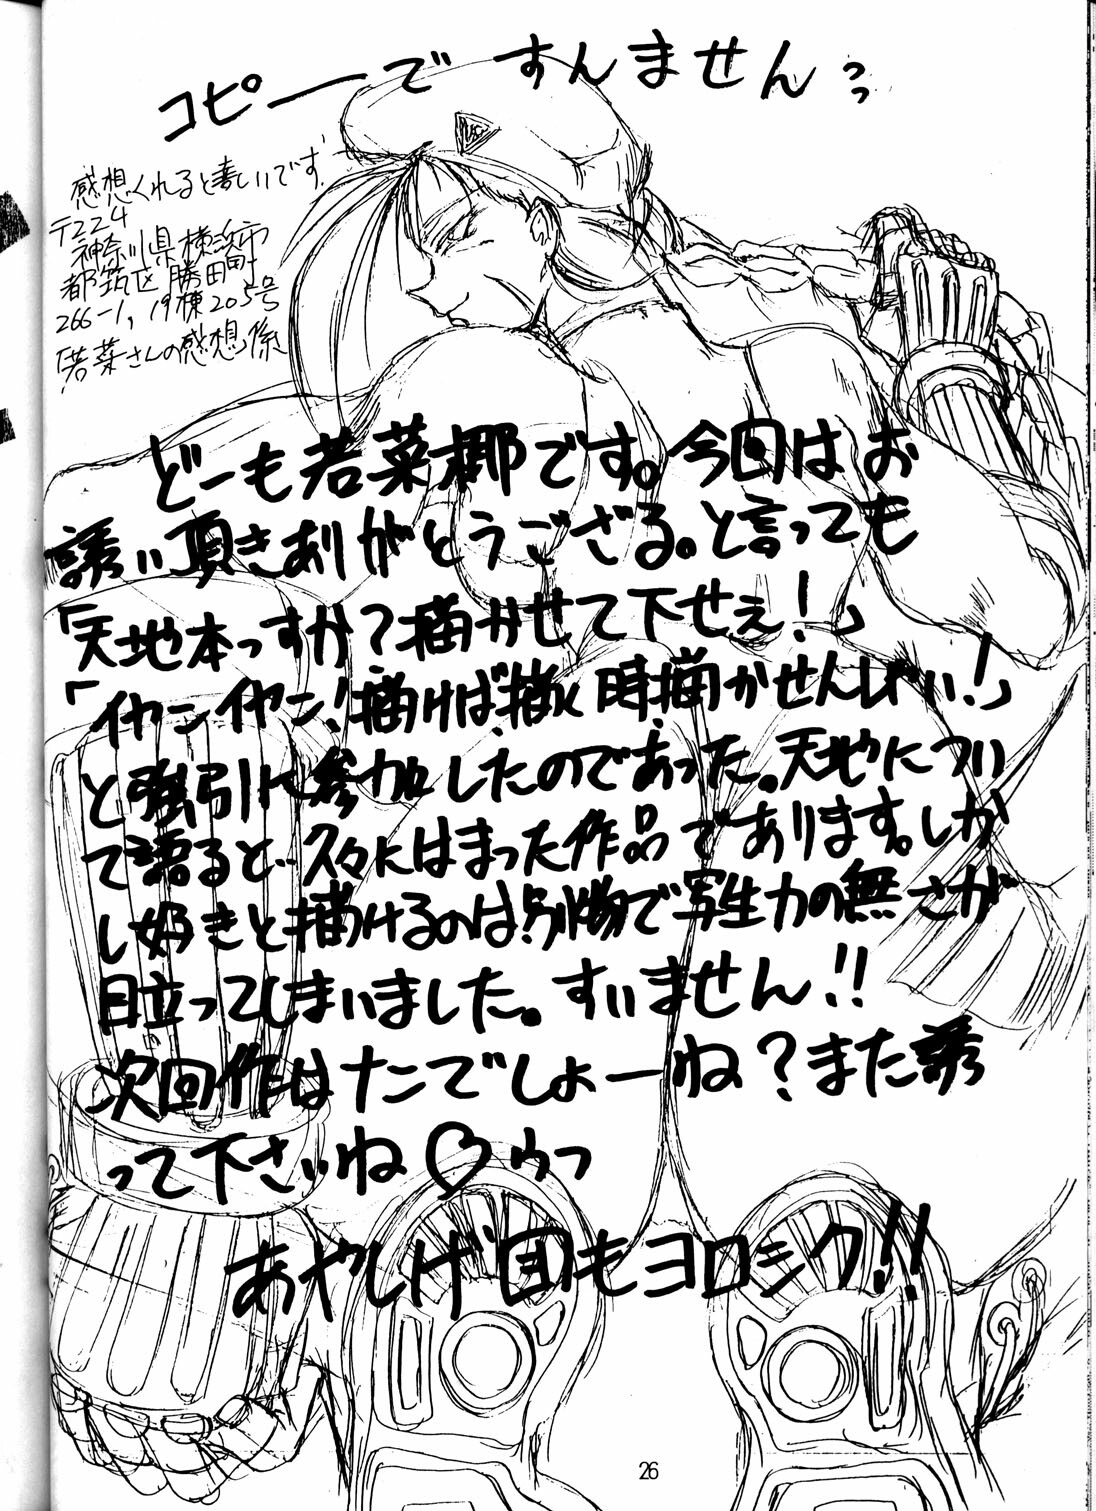 コピーですんませんっ
感想くれると凄いです
〒224
神奈川県横浜市
都筑区勝田町
266-1, 19棟205号
「若菜さんの感想係
どーも若菜椰です。今回はお
誘い頂きありがとうござる。と言っても
「天地本っすか？描かせて下せぇ！」
「イヤンイヤン！描けば描く時描かせんしゃい！」
と強引に参加したのであった。天地につい
て語ると…久々にはまった作品であります。しか
し好きと描けるのは別物で写生力の無さが
目立ってしまいました。すいません!!
次回作はナニでしょーね？また誘
って下さいね♡ウっ
あやしげ団もヨロシク!!
26